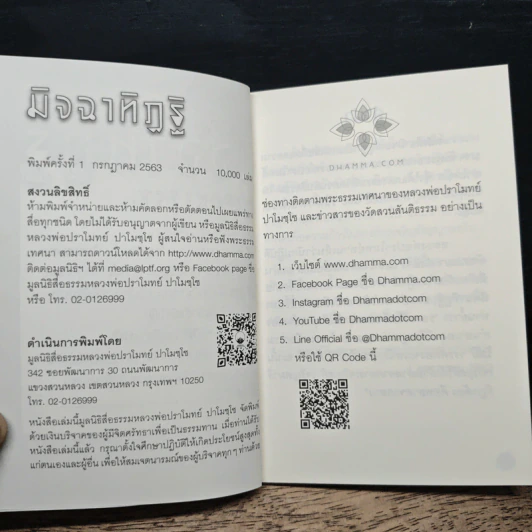 มิจฉาทิฏฐิ
พิมพ์ครั้งที่ 1 กรกฎาคม 2563 จำนวน 10,000 เล่ม
สงวนลิขสิทธิ์
ห้ามพิมพ์จำหน่ายและห้ามคัดลอกหรือตัดตอนไปเผยแพร่ทาง
สื่อทุกชนิด โดยไม่ได้รับอนุญาตจากผู้เขียน หรือมูลนิธิสื่อธรรม
หลวงพ่อปราโมทย์ ปาโมชฺโช ผู้สนใจอ่านหรือฟังพระธรรม
เทศนา สามารถดาวน์โหลดได้จาก http://www.dhamma.com
ติดต่อมูลนิธิฯ ได้ที่ media@lptf.org หรือ Facebook page ชื่อ
มูลนิธิสื่อธรรมหลวงพ่อปราโมทย์ ปาโมชฺโช
หรือ โทร. 02-0126999
ดำเนินการพิมพ์โดย
มูลนิธิสื่อธรรมหลวงพ่อปราโมทย์ ปาโมชฺโช
342 ซอยพัฒนาการ 30 ถนนพัฒนาการ
แขวงสวนหลวง เขตสวนหลวง กรุงเทพฯ 10250
โทร. 02-0126999
หนังสือเล่มนี้มูลนิธิสื่อธรรมหลวงพ่อปราโมทย์ ปาโมชฺโช จัดพิมพ์
ด้วยเงินบริจาคของผู้มีจิตศรัทธาเพื่อเป็นธรรมทาน เมื่อท่านได้รับ
หนังสือเล่มนี้แล้ว กรุณาตั้งใจศึกษาปฏิบัติให้เกิดประโยชน์สูงสุดทั้ง
แก่ตนเองและผู้อื่น เพื่อให้สมเจตนารมณ์ของผู้บริจาคทุก ๆ ท่านด้วย
DHAMMA.COM
ช่องทางติดตามพระธรรมเทศนาของหลวงพ่อปราโมทย์
ปาโมชฺโช และข่าวสารของวัดสวนสันติธรรม อย่างเป็น
ทางการ
1. เว็บไซต์ www.dhamma.com
2. Facebook Page ชื่อ Dhamma.com
3. Instagram ชื่อ Dhammadotcom
4. YouTube ชื่อ Dhammadotcom
5. Line Official ชื่อ @Dhammadotcom
หรือใช้ QR Code นี้